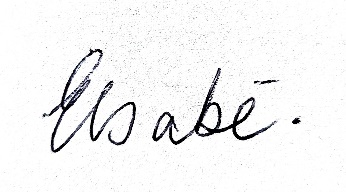 Elsabē.